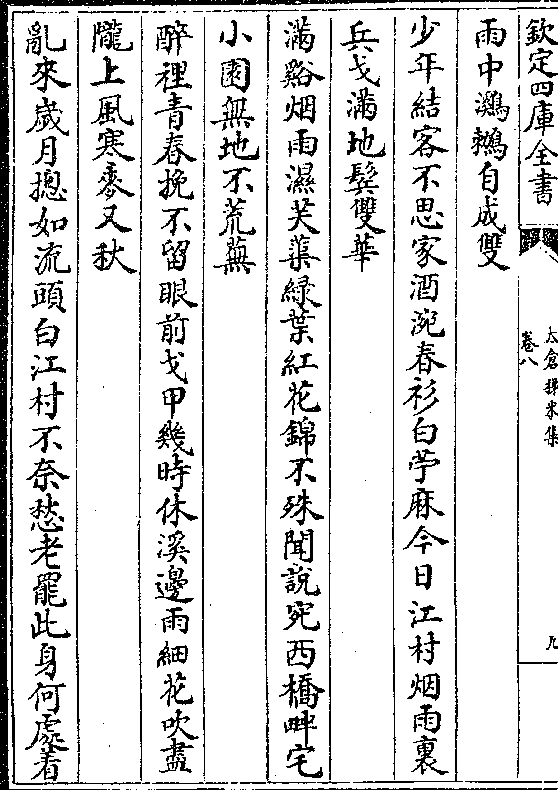 欽定四庫全書
太倉稊米集
卷八
九
雨中鸂鶒自成雙
少年結客不思家酒涴春衫白苧麻今日江村烟雨裏
兵戈滿地鬂雙華
滿谿烟雨濕芙蕖緑葉紅花錦不殊聞說宛西橋畔宅
小園無地不荒蕪
醉裡青春挽不留眼前戈甲幾時休溪邊雨細花吹盡
隴上風寒麥又秋
亂來歲月摠如流頭白江村不奈愁老罷此身何處着